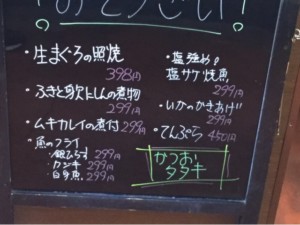 おそうざい!
・生まぐろの照焼
398円
・ふきと身欠にしんの煮物
299円
・ムキカレイの煮付 299円
・魚のフライ
銀ひらす 299円
カジキ 299円
白身魚 299円
・塩強め!
塩サケ焼魚
299円
・いかのかきあげ
299円
・てんぷら 450円
かつお
タタキ